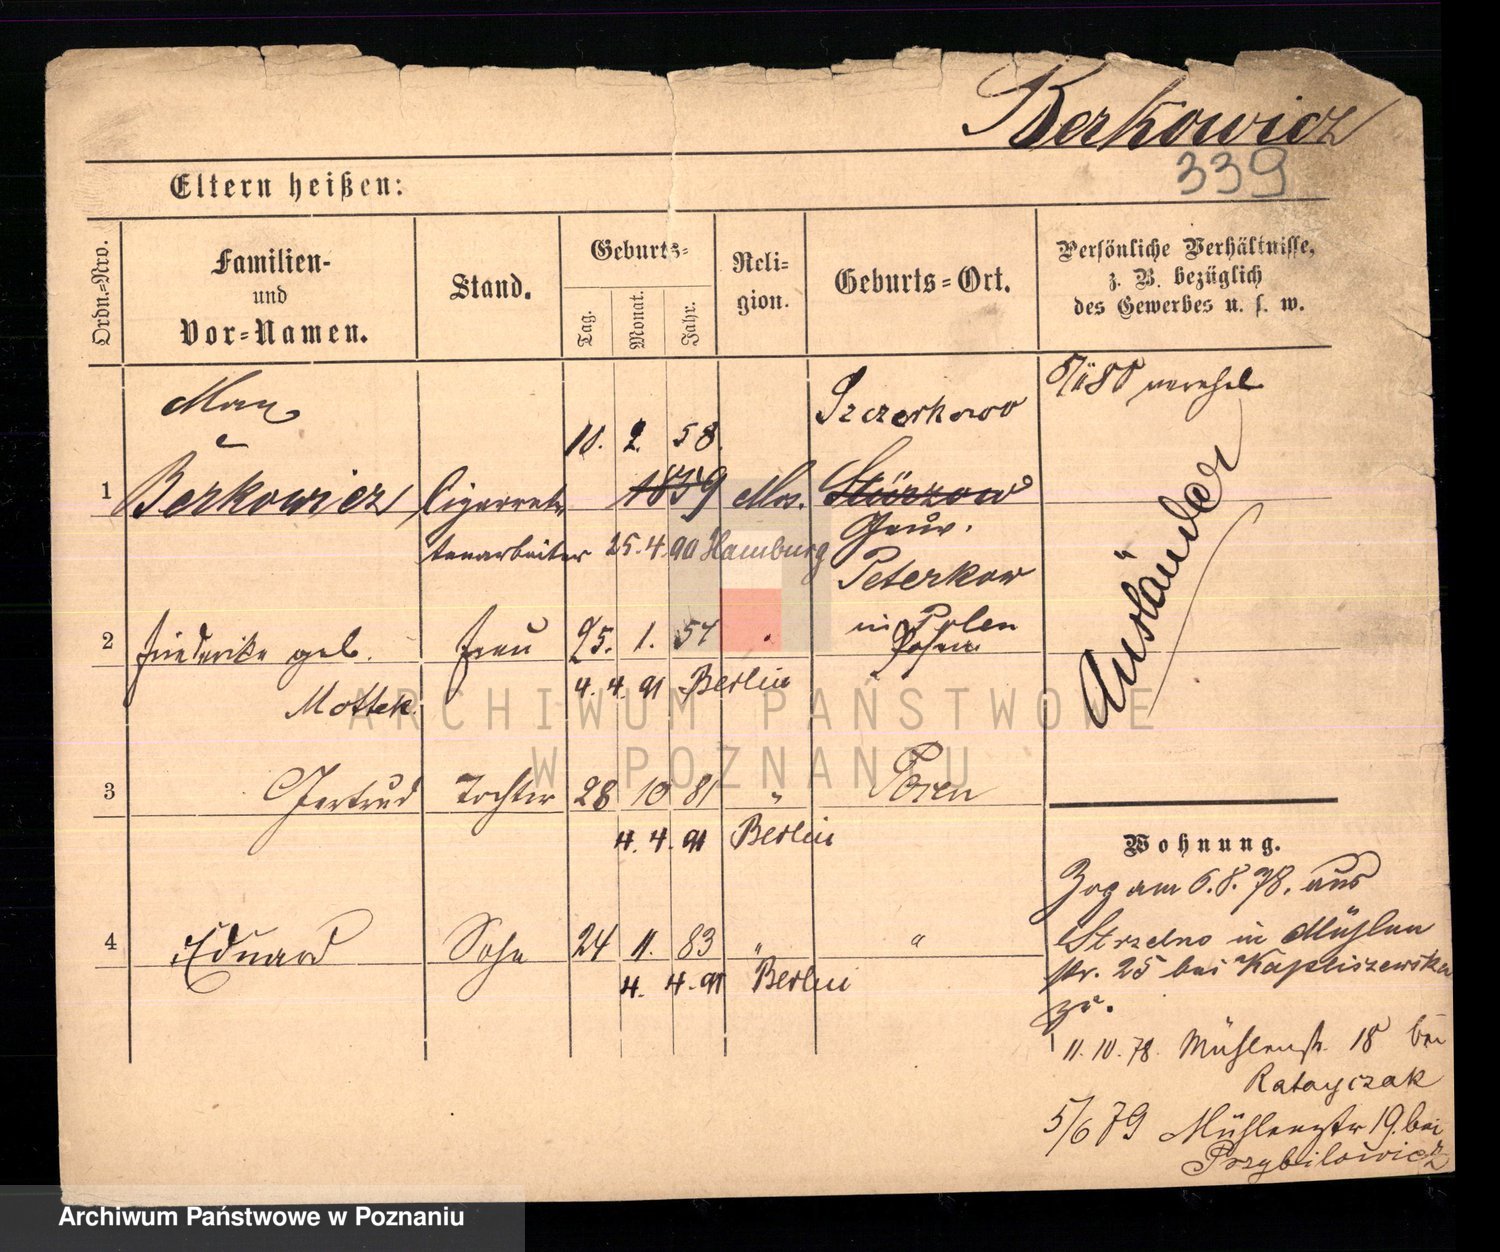 Berkowicz
339
Eltern heißen:
Ordn.=Nro.
Familien-
und
Vor=Namen.
Stand.
Geburts=
Tag.
Monat.
Jahr.
Reli=
gion.
Geburts=Ort.
Persönliche Verhältnisse,
z. B. bezüglich
des Gewerbes u. s. w.
Max
10. 2. 58.
Szczerkowo
1 Berkowicz Cigarret- 1859 Mos.
tenarbeiter 25.4.90 Hamburg
Gouv.
Peterkow
in Polen
Ausländer
2 Friederike geb. Frau 25. 1. 57 Posen
Mottek 4. 4. 91 Berlin
3 Gertrud Tochter 28 10 81 " Posen
4. 4. 91 Berlin
4 Eduard Sohn 24 11. 83 " "
4. 4. 91 Berlin
Wohnung.
Zog am 6.8.78. aus
Strzelno in Mühlen
str. 25 bei Kapliszewska
zu.
11. 10. 78. Mühlenstr. 18 bei
Ratayczak
5/6 79 Mühlenstr 19. bei
Przybilowicz
ARCHIWUM PAŃSTWOWE
W POZNANIU
Archiwum Państwowe w Poznaniu